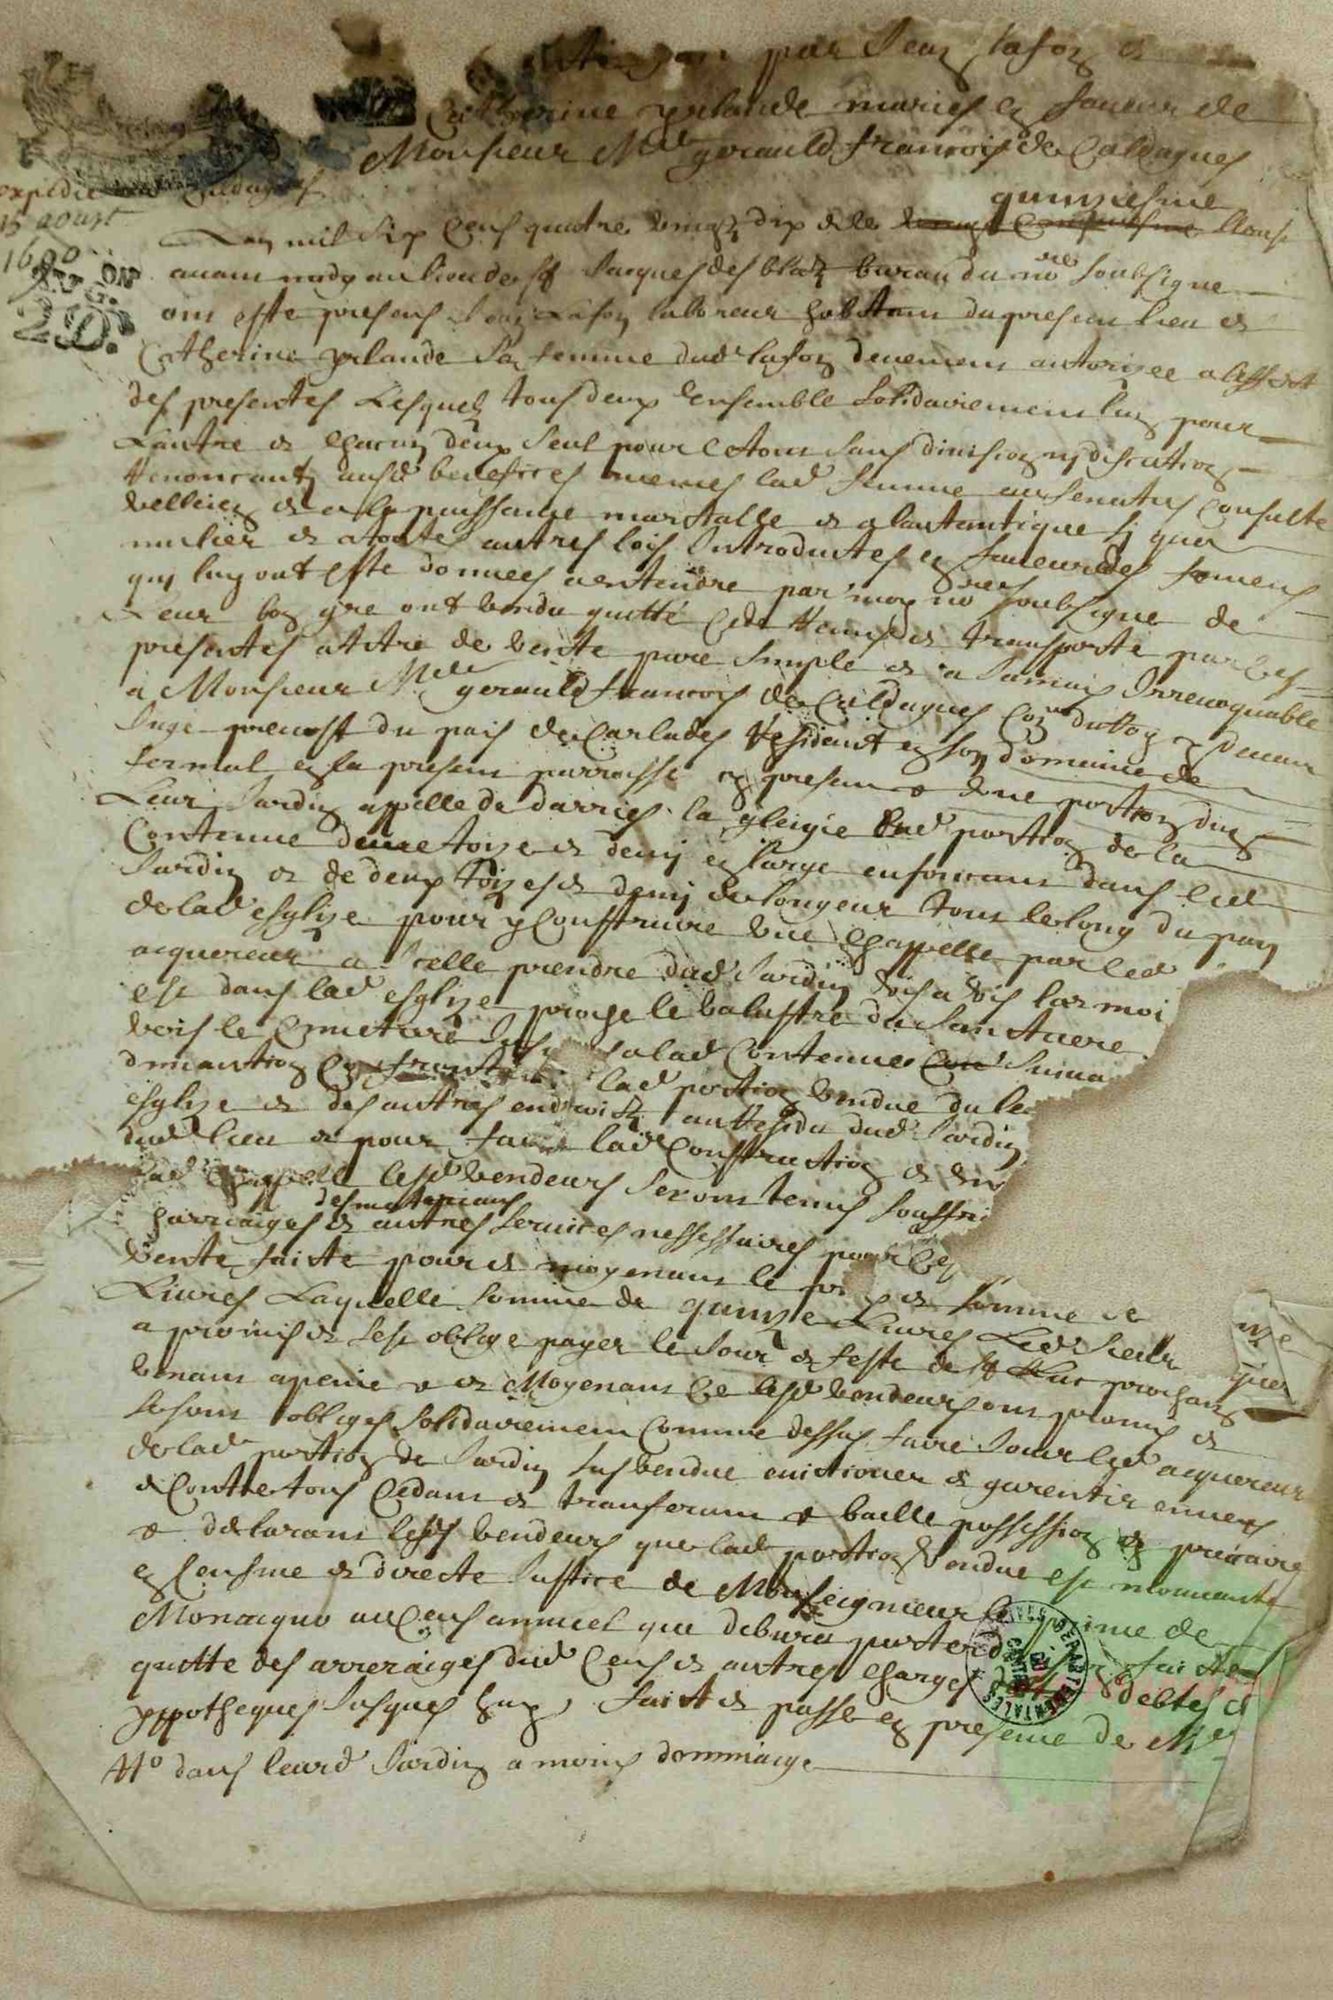 par Jean Lafon et
Catherine yrlande mariés en faveur de
Monsieur Me gerauld francois de Caldagues
expedié
Caldagues
15 aoust
1690
quinziesme
Lan mil six Cens quatre vingtz dix et le
avant midy au lieu de St Jacques des blatz du nore soubsigne
ont este presens Jean Lafon laboreur habitant du present lieu et
Catherine yrlande sa femme dud lafon deuement authorizee a leffect
des presentes Lesquelz tous deux ensemble solidairement lun pour
Lautre et chacun deux seul pour le tout sans division ny discution
Renoncantz ausd benefices mesmes lad femme au senatus consulte
velleien et a la puissance maritalle et a lautantique si qua
mulier et a toutes autres lois Introduites en faveur des femens
quy luy ont este donnees a entendre par moy nore soubsigne de
Leur bon gre ont vendu quitté cede Remis et transporté par les
presentes a titre de vente pure simple et a Jamais Irrevoquable
a Monsieur Me gerauld francois de Caldagues Coner du Roy
Juge prevost du pais de Carlades Residant en son domaine de
en la present parroisse present + dune portion dun
Leur Jardin appelle de darrier la gleigie lad portion de la
Contenue dune toize et demy en large enfoncant dans led
Jardin et de deux toizes et demy de longeur tout le long du pan
de lad esglize pour y construire une chappelle par led
acquereur a Icelle prendre dud Jardin vis a vis lar moi
est dans lad esglize proche le balustre du sanctuere
vers le cimetiere a lad contenue
lad portion vendue du
esglize et des autres endroitz au Residu dud Jardin
dud lieu et pour faire lad Construction et
lad chappelle lesd vendeurs seront tenus souffri
des materiaux
charriaiges et autres services nessessaires pour les
vente faicte pour et moyenant le et somme de
Livres Laquelle somme de quinze Livres Led Sieur
a promis et sest oblige payer le Jour et feste de St Luc prochain
venant a peine + et Moyenant ce lesd vendeurs ont promis et
se sont obliges solidairement comme dessus faire Jouir led acquereur
de lad portion de Jardin sus vendue evictioner et garentir envers
et Contre tous cedant et transferant + baille possession et precaire
+ declarant lesds vendeurs que lad portion vendue est mouvante
en censive et directe Justice de Monseigneur le prince de
Monacquo au cens annuel que devera porter faicte
quitte des arreraiges dud cens et autres charges debtes et
yppotheques Jusques huy, faict et passé en presence de
+ Ro dans leurd Jardin a moins dommaige